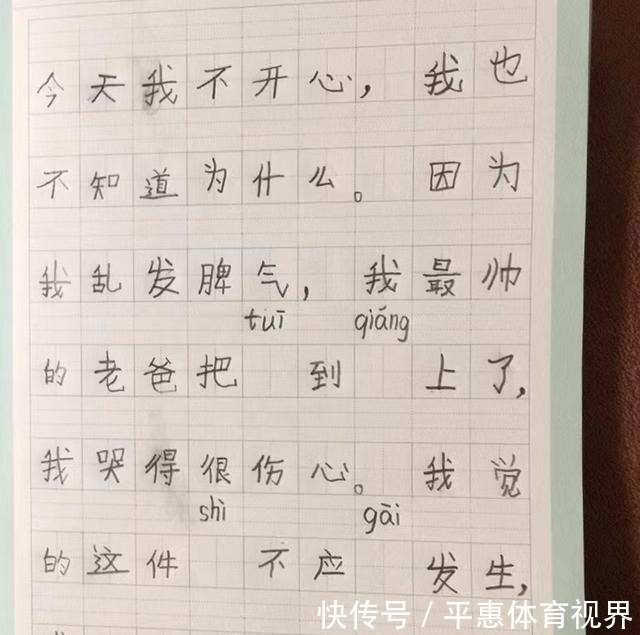 今天我不开心，我也
不知道为什么。因为
我乱发脾气，我最帅
tuī qiáng
的老爸把 到 上了，
我哭得很伤心。我觉
shì gāi
的这件 不应 发生，
快传号 / 平惠体育视界